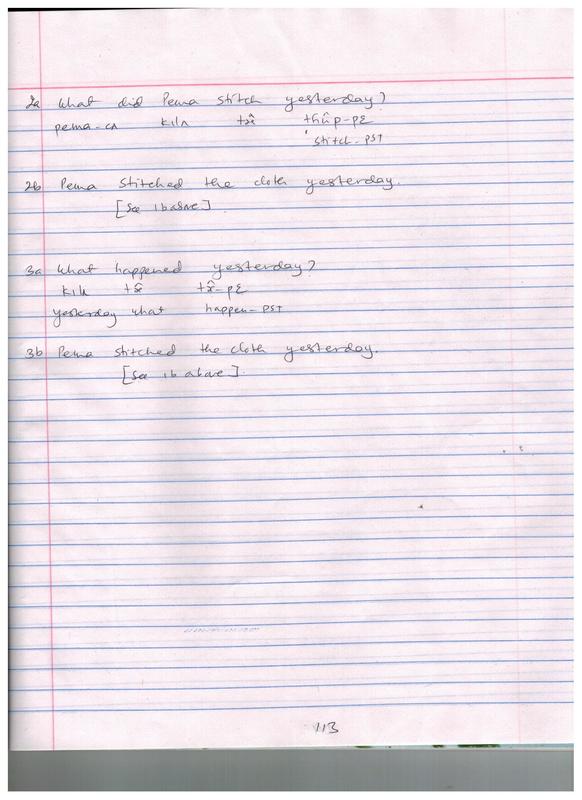 2a What did Pema stitch yesterday?
pema-cʌ kɪlʌ thûp-pɛ
stitch-PST
2b Pema stitched the cloth yesterday.
[See 1b above]
3a What happened yesterday?
yesterday what happen-PST
3b Pema stitched the cloth yesterday.
[See 1b above].
113